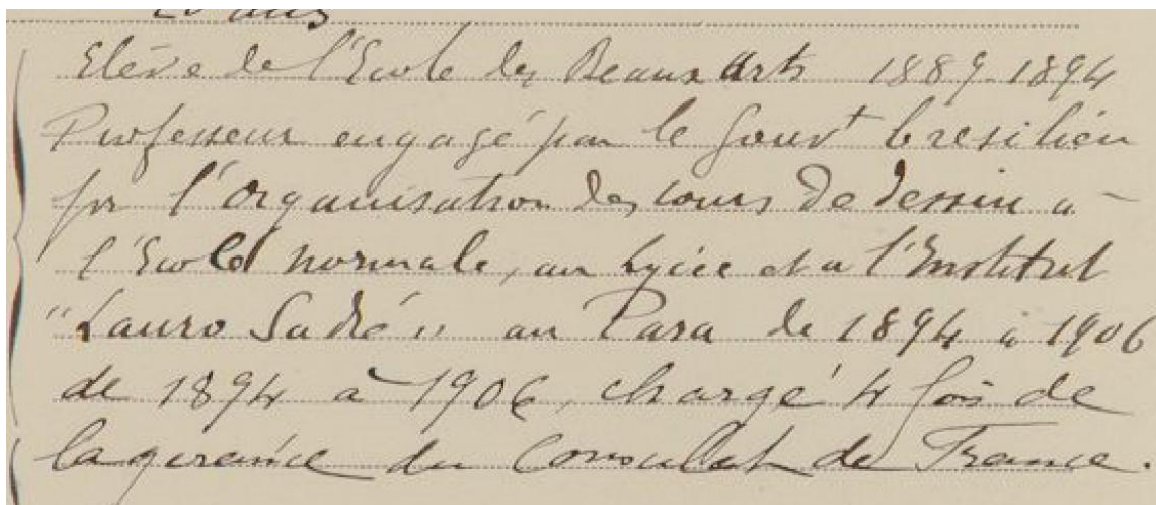 Elève de l'Ecole des Beaux Arts 1889-1894
Professeur engagé par le Gouvt bresilién
pr l'Organisation des cours de dessin a
l'Ecole normale, au Lycée et a l'Institut
"Lauro Sadré" au Para de 1894 à 1906
de 1894 à 1906, chargé 4 fois de
la gerance du Consulat de France.